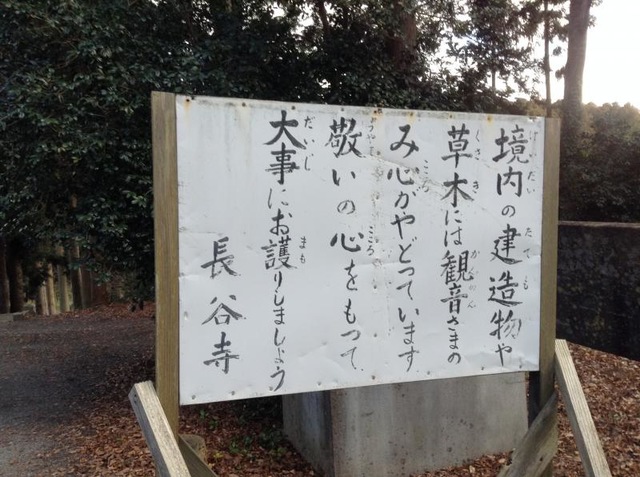 境内の建造物や
草木には観音さまの
み心がやどっています
敬いの心をもって
大事にお護りしましょう
長谷寺